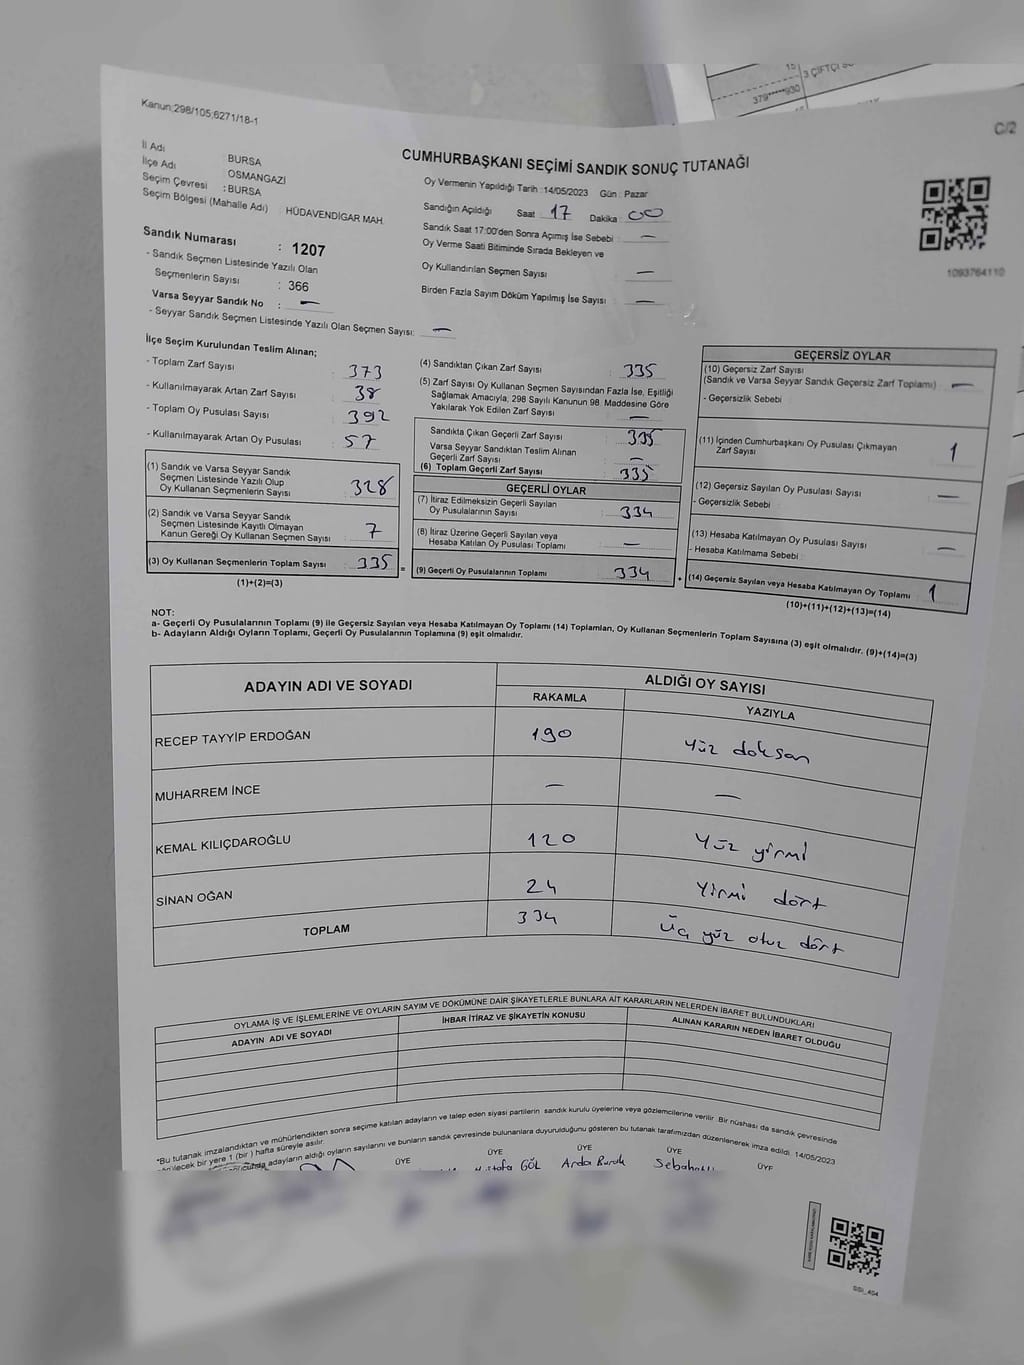 15
3 ÇİFTÇİ
379*****930
Kanun;298/105;6271/18-1
C/2
CUMHURBAŞKANI SEÇİMİ SANDIK SONUÇ TUTANAĞI
İl Adı : BURSA
İlçe Adı : OSMANGAZİ
Seçim Çevresi : BURSA
Seçim Bölgesi (Mahalle Adı) : HÜDAVENDİGAR MAH.
Sandık Numarası : 1207
- Sandık Seçmen Listesinde Yazılı Olan
Seçmenlerin Sayısı : 366
Varsa Seyyar Sandık No : —
- Seyyar Sandık Seçmen Listesinde Yazılı Olan Seçmen Sayısı: —
Oy Vermenin Yapıldığı Tarih :14/05/2023 Gün : Pazar
Sandığın Açıldığı Saat 17 Dakika : 00
Sandık Saat 17:00'den Sonra Açılmış İse Sebebi : —
Oy Verme Saati Bitiminde Sırada Bekleyen ve
Oy Kullandırılan Seçmen Sayısı —
Birden Fazla Sayım Döküm Yapılmış İse Sayısı —
1093764110
İlçe Seçim Kurulundan Teslim Alınan;
- Toplam Zarf Sayısı : 373
- Kullanılmayarak Artan Zarf Sayısı : 38
- Toplam Oy Pusulası Sayısı : 392
- Kullanılmayarak Artan Oy Pusulası : 57
(1) Sandık ve Varsa Seyyar Sandık
Seçmen Listesinde Yazılı Olup
Oy Kullanan Seçmenlerin Sayısı 328
(2) Sandık ve Varsa Seyyar Sandık
Seçmen Listesinde Kayıtlı Olmayan
Kanun Gereği Oy Kullanan Seçmen Sayısı : 7
(3) Oy Kullanan Seçmenlerin Toplam Sayısı : 335 =
(1)+(2)=(3)
(4) Sandıktan Çıkan Zarf Sayısı : 335
(5) Zarf Sayısı Oy Kullanan Seçmen Sayısından Fazla İse, Eşitliği
Sağlamak Amacıyla, 298 Sayılı Kanunun 98. Maddesine Göre
Yakılarak Yok Edilen Zarf Sayısı : —
Sandıkta Çıkan Geçerli Zarf Sayısı : 335
Varsa Seyyar Sandıktan Teslim Alınan
Geçerli Zarf Sayısı : —
(6) Toplam Geçerli Zarf Sayısı : 335
GEÇERLİ OYLAR
(7) İtiraz Edilmeksizin Geçerli Sayılan
Oy Pusulalarının Sayısı : 334
(8) İtiraz Üzerine Geçerli Sayılan veya
Hesaba Katılan Oy Pusulası Toplamı : —
(9) Geçerli Oy Pusulalarının Toplamı : 334 +
GEÇERSİZ OYLAR
(10) Geçersiz Zarf Sayısı
(Sandık ve Varsa Seyyar Sandık Geçersiz Zarf Toplamı) : —
- Geçersizlik Sebebi :
(11) İçinden Cumhurbaşkanı Oy Pusulası Çıkmayan
Zarf Sayısı : 1
(12) Geçersiz Sayılan Oy Pusulası Sayısı : —
- Geçersizlik Sebebi :
(13) Hesaba Katılmayan Oy Pusulası Sayısı : —
- Hesaba Katılmama Sebebi :
(14) Geçersiz Sayılan veya Hesaba Katılmayan Oy Toplamı : 1
(10)+(11)+(12)+(13)=(14)
NOT:
a- Geçerli Oy Pusulalarının Toplamı (9) ile Geçersiz Sayılan veya Hesaba Katılmayan Oy Toplamı (14) Toplamları, Oy Kullanan Seçmenlerin Toplam Sayısına (3) eşit olmalıdır. (9)+(14)=(3)
b- Adayların Aldığı Oyların Toplamı, Geçerli Oy Pusulalarının Toplamına (9) eşit olmalıdır.
ADAYIN ADI VE SOYADI
ALDIĞI OY SAYISI
RAKAMLA YAZIYLA
RECEP TAYYİP ERDOĞAN 190 Yüz doksan
MUHARREM İNCE — —
KEMAL KILIÇDAROĞLU 120 Yüz yirmi
SİNAN OĞAN 24 Yirmi dört
TOPLAM 334 Üç yüz otuz dört
OYLAMA İŞ VE İŞLEMLERİNE VE OYLARIN SAYIM VE DÖKÜMÜNE DAİR ŞİKAYETLERLE BUNLARA AİT KARARLARIN NELERDEN İBARET BULUNDUKLARI
ADAYIN ADI VE SOYADI İHBAR İTİRAZ VE ŞİKAYETİN KONUSU ALINAN KARARIN NEDEN İBARET OLDUĞU
*Bu tutanak imzalandıktan ve mühürlendikten sonra seçime katılan adayların ve talep eden siyasi partilerin sandık kurulu üyelerine veya gözlemcilerine verilir. Bir nüshası da sandık çevresinde
bir yere 1 (bir) hafta süreyle asılır.
adayların aldığı oyların sayılarını ve bunların sandık çevresinde bulunanlara duyurulduğunu gösteren bu tutanak tarafımızdan düzenlenerek imza edildi. 14/05/2023
ÜYE ÜYE ÜYE ÜYE ÜYE
GÖL Arda Burak
SSİ_404